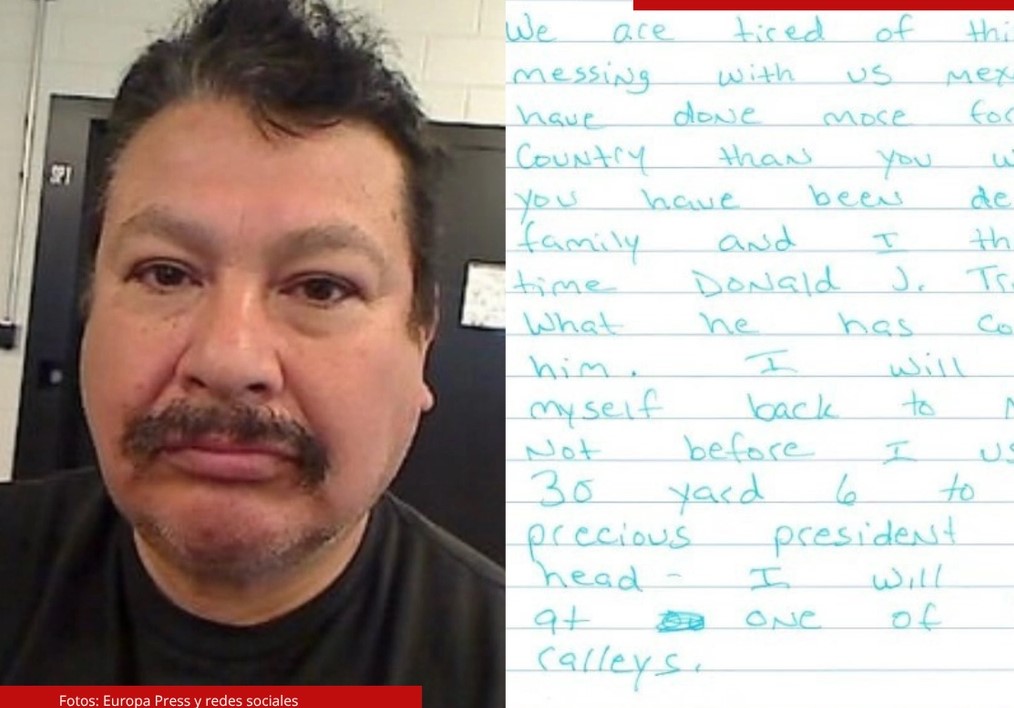 SPI
We are tired of thi
messing with us mex
have done more for
Country than you w
you have been de
family and I th
time Donald J. Tr
What he has co
him. I will
myself back to
Not before I us
30 yard 6 to
precious president
head - I will
at one of
ralleys.
Fotos: Europa Press y redes sociales